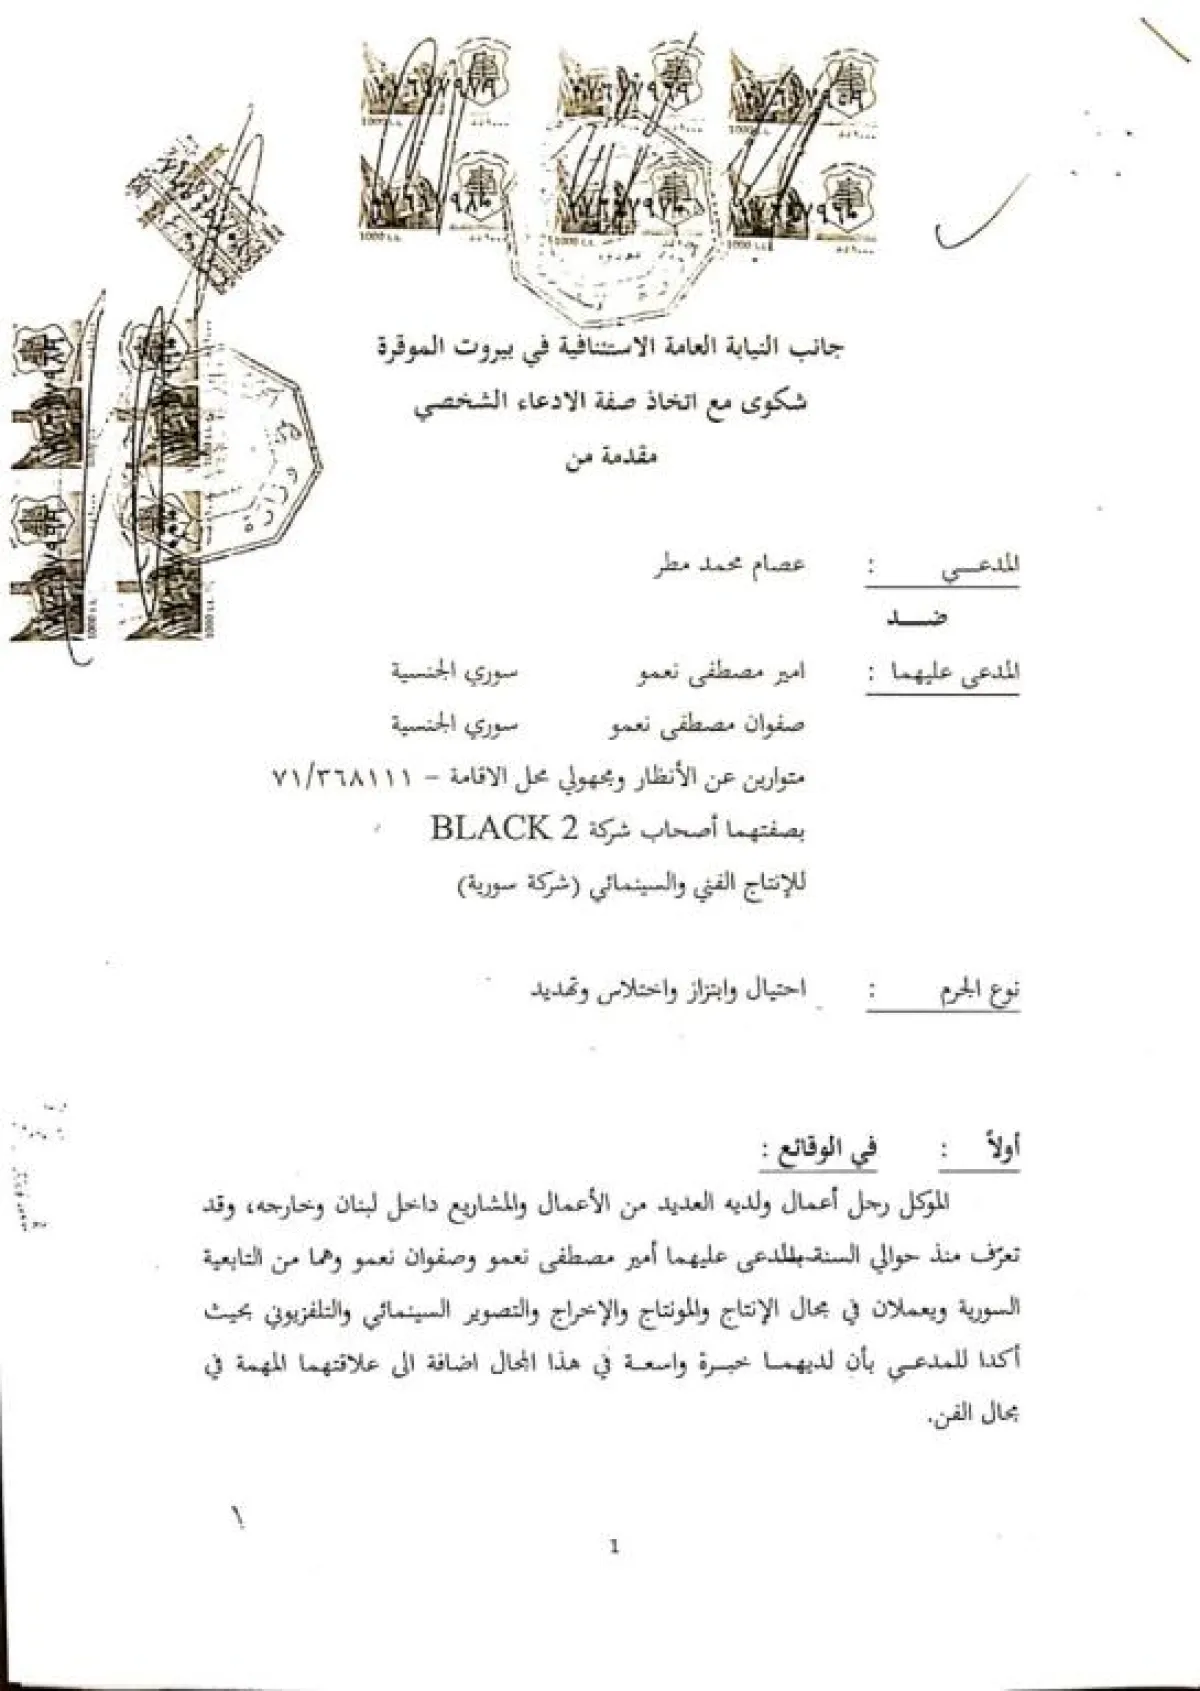 جانب النيابة العامة الاستئنافية في بيروت الموقرة
شكوى مع اتخاذ صفة الادعاء الشخصي
مقدمة من
المدعـــي : عصام محمد مطر
ضـــد
المدعى عليهما : امير مصطفى نعمو سوري الجنسية
صفوان مصطفى نعمو سوري الجنسية
متوارين عن الأنظار ومجهولي محل الاقامة – ٧١/٣٦٨١١١
بصفتهما أصحاب شركة BLACK 2
للإنتاج الفني والسينمائي (شركة سورية)
نوع الجرم : احتيال وابتزاز واختلاس وتهديد
أولاً : في الوقائع :
الموكل رجل أعمال ولديه العديد من الأعمال والمشاريع داخل لبنان وخارجه، وقد
تعرّف منذ حوالي السنة بالمدعى عليهما أمير مصطفى نعمو وصفوان نعمو وهما من التابعية
السورية ويعملان في مجال الإنتاج والمونتاج والإخراج والتصوير السينمائي والتلفزيوني بحيث
أكدا للمدعـــي بأن لديهمـا خبـرة واسعـة في هذا المجال اضافة الى علاقتهما المهمة في
مجال الفن.
١
1